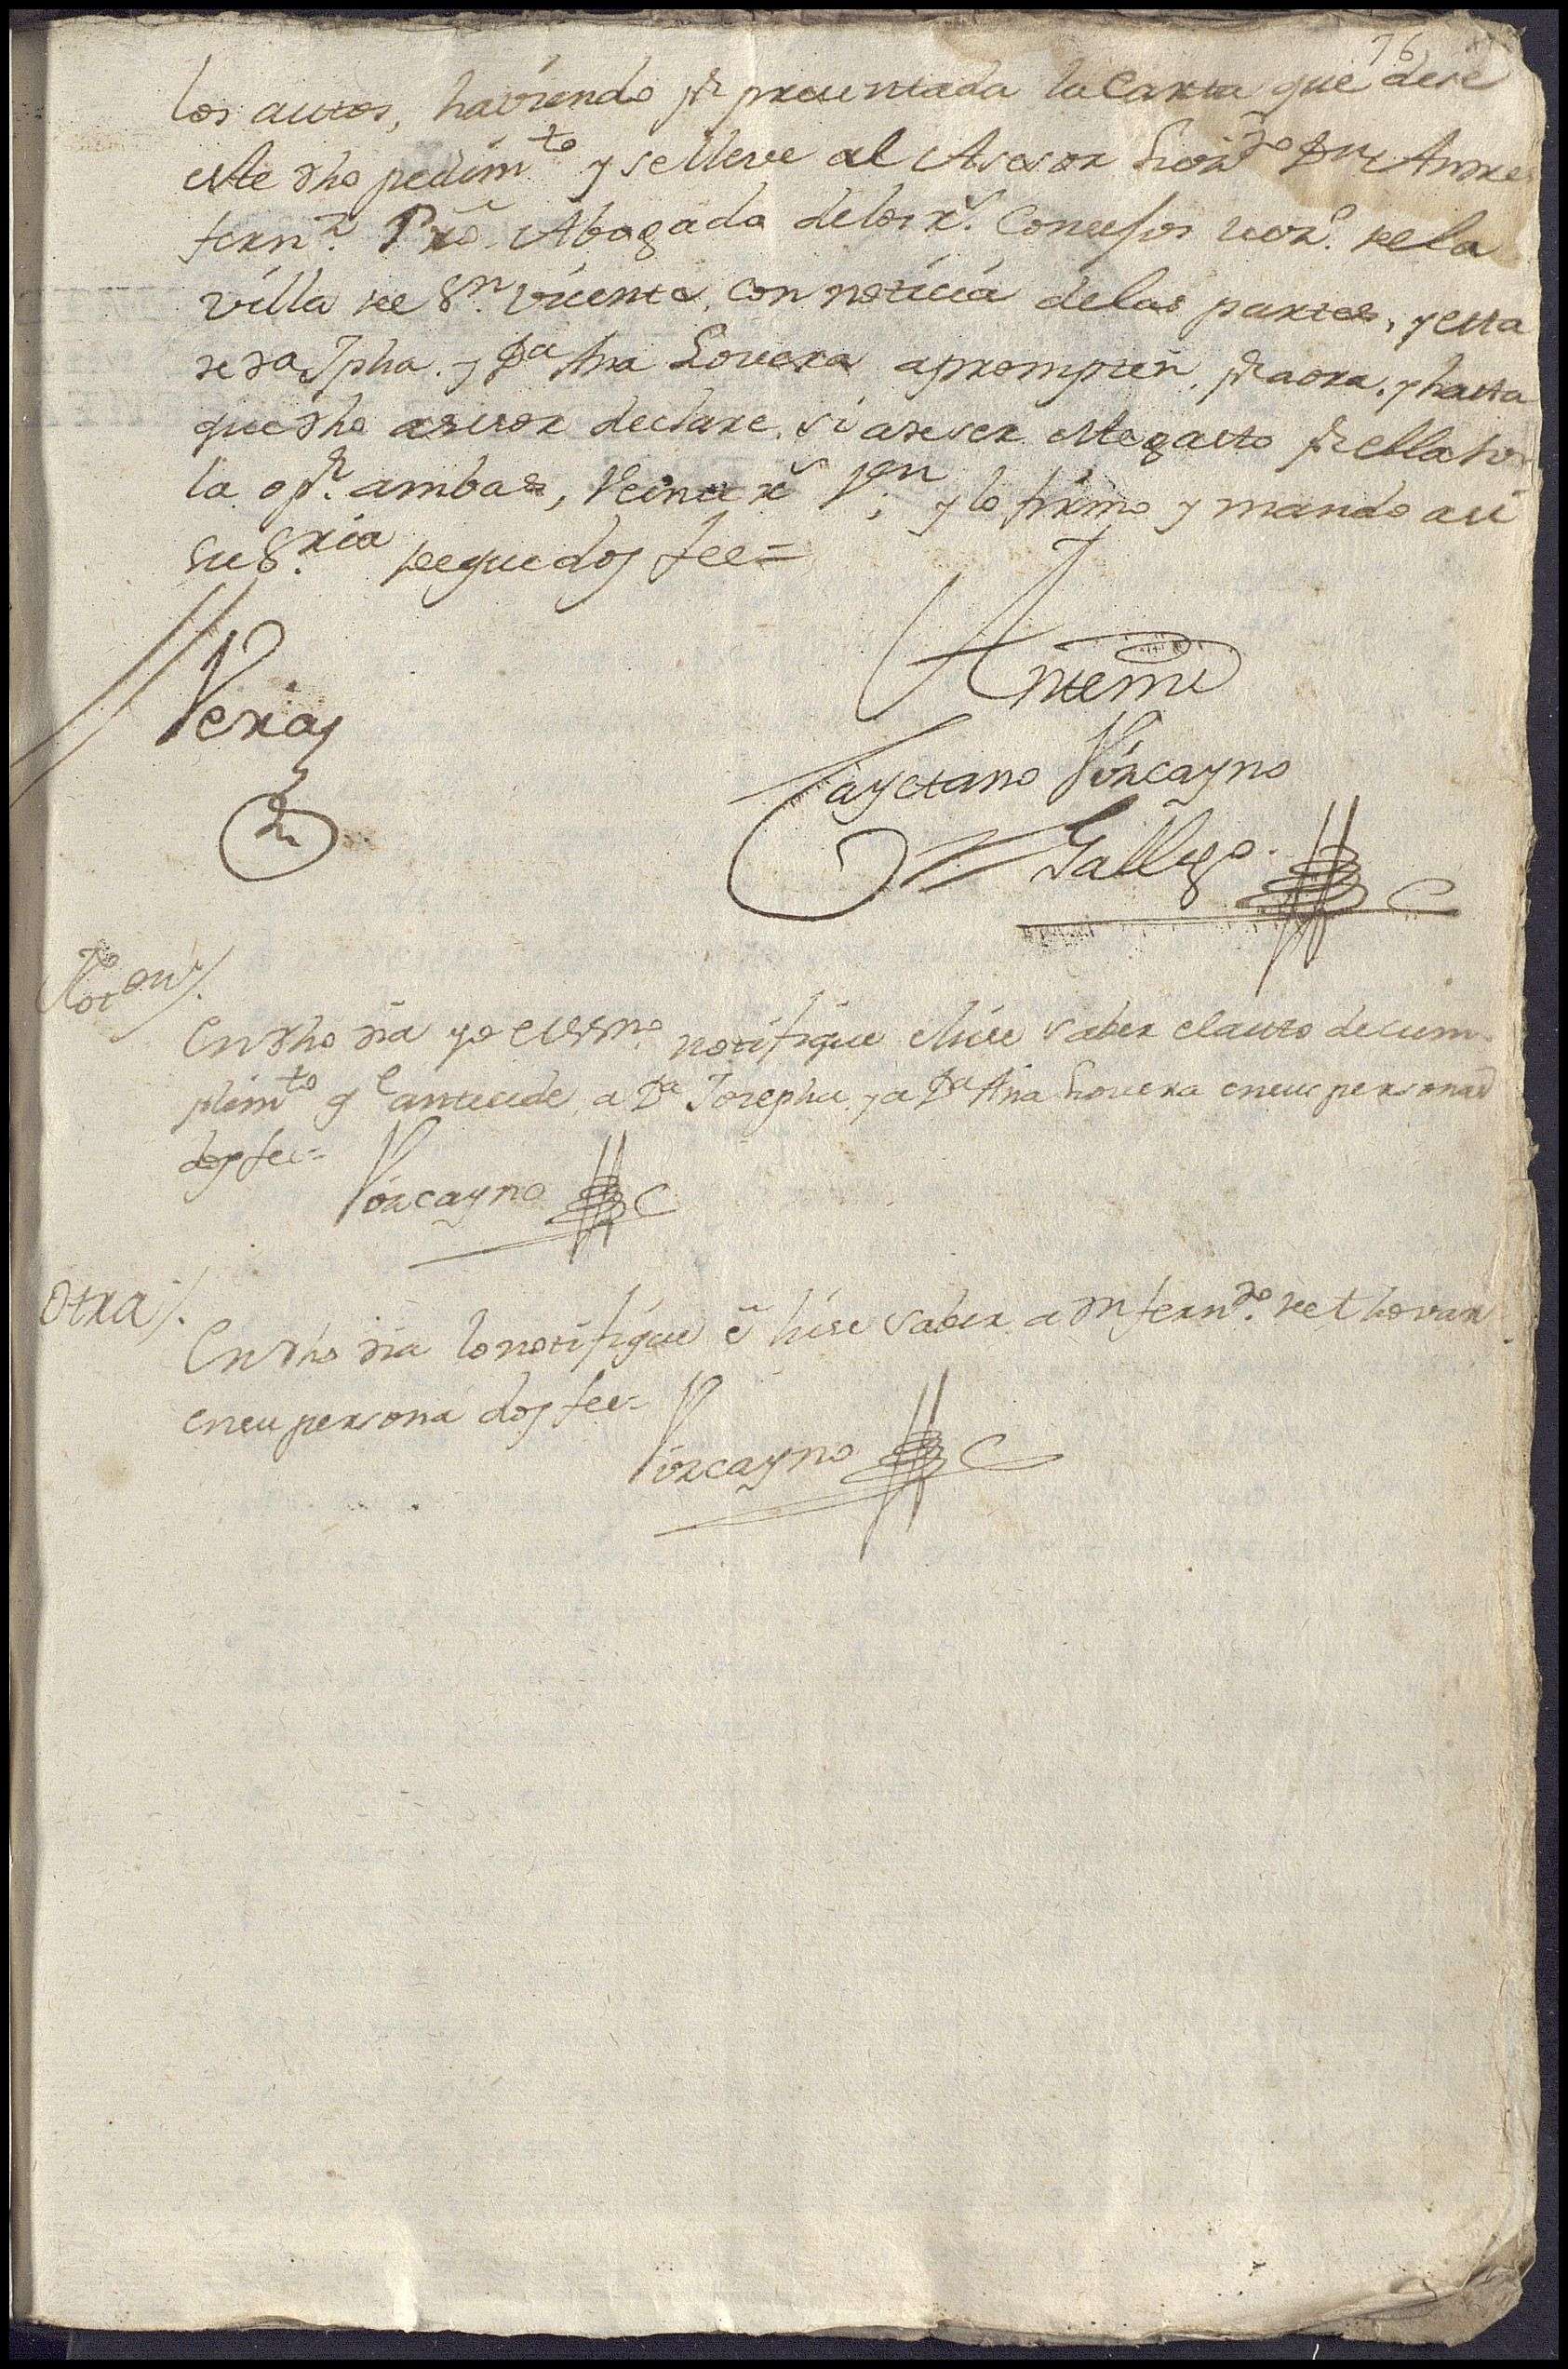 76
los autos, haviendo pr. presentada la Carta que dese
este dho pedimto. y se lleve al Asesor Lizdo. Dn Andres
fernz. Abogada de los rs. Consejos vezo. de la
villa de Sn. Vicente, con noticia de las partes, y esta
de Da Jpha. y Da Ana Lovera aprompten. pr aora. y hasta
que dho asesor declare. si a de ser este gasto pr ella so
la o pr. ambas, Veinte rs Von; y lo firmo y mando asi
su Sria. de que doy fee=
Veras
Antemi
Cayetano Vizcayno
Gallego
Noton/.
En dho dia yo el essno. notifique e hice saber el auto de cum
plimto qe antecede, a Da Josepha y a Da Ana Lovera en sus personas
doy fee=
Vizcayno
Otra/.
En dho dia lo notifique e hise saber a Dn ferndo. de Thovar
en su persona doy fee=
Vizcayno